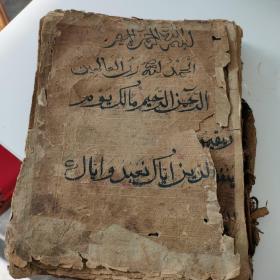 بسم الله الرحمن الرحيم
الحمد لله رب العالمين
الرحمن الرحيم مالك يوم
الدين اياك نعبد واياك